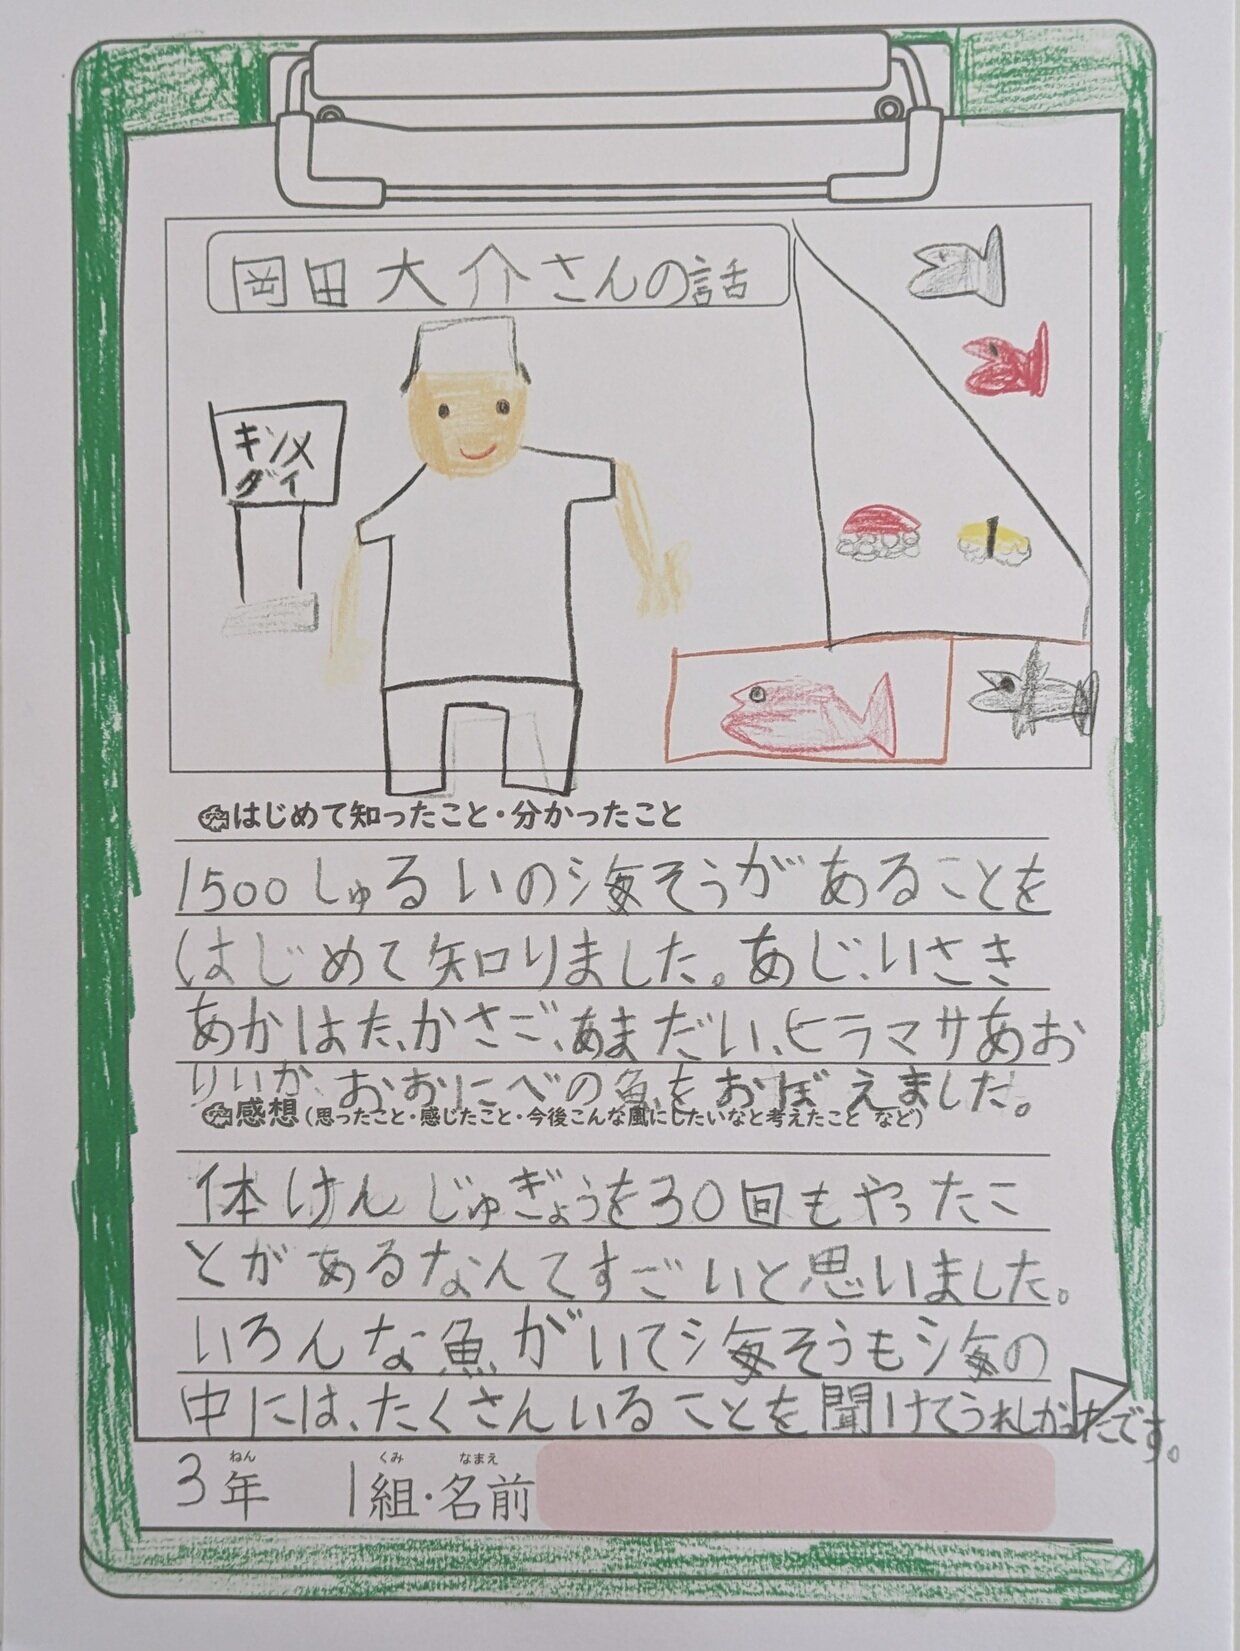 岡田大介さんの話
キンメ
ダイ
はじめて知ったこと・分かったこと
1500しゅるいの海そうがあることを
はじめて知りました。あじ、いさき
あかはた、かさご、あまだい、ヒラマサあお
りいか、おおにべの魚をおぼえました。
感想(思ったこと・感じたこと・今後こんな風にしたいなと考えたこと など)
体けんじゅぎょうを30回もやったこ
とがあるなんてすごいと思いました。
いろんな魚がいて海そうも海の
中には、たくさんいることを聞けてうれしかったです。
3年 1組・名前
ねん くみ なまえ